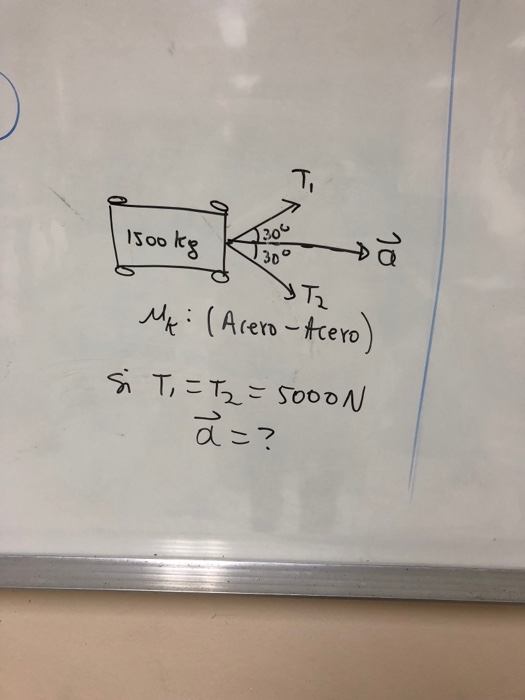 T₁
1500 kg
30°
30°
a⃗
T₂
μₖ: (Acero - Acero)
Si T₁ = T₂ = 5000N
a⃗ = ?